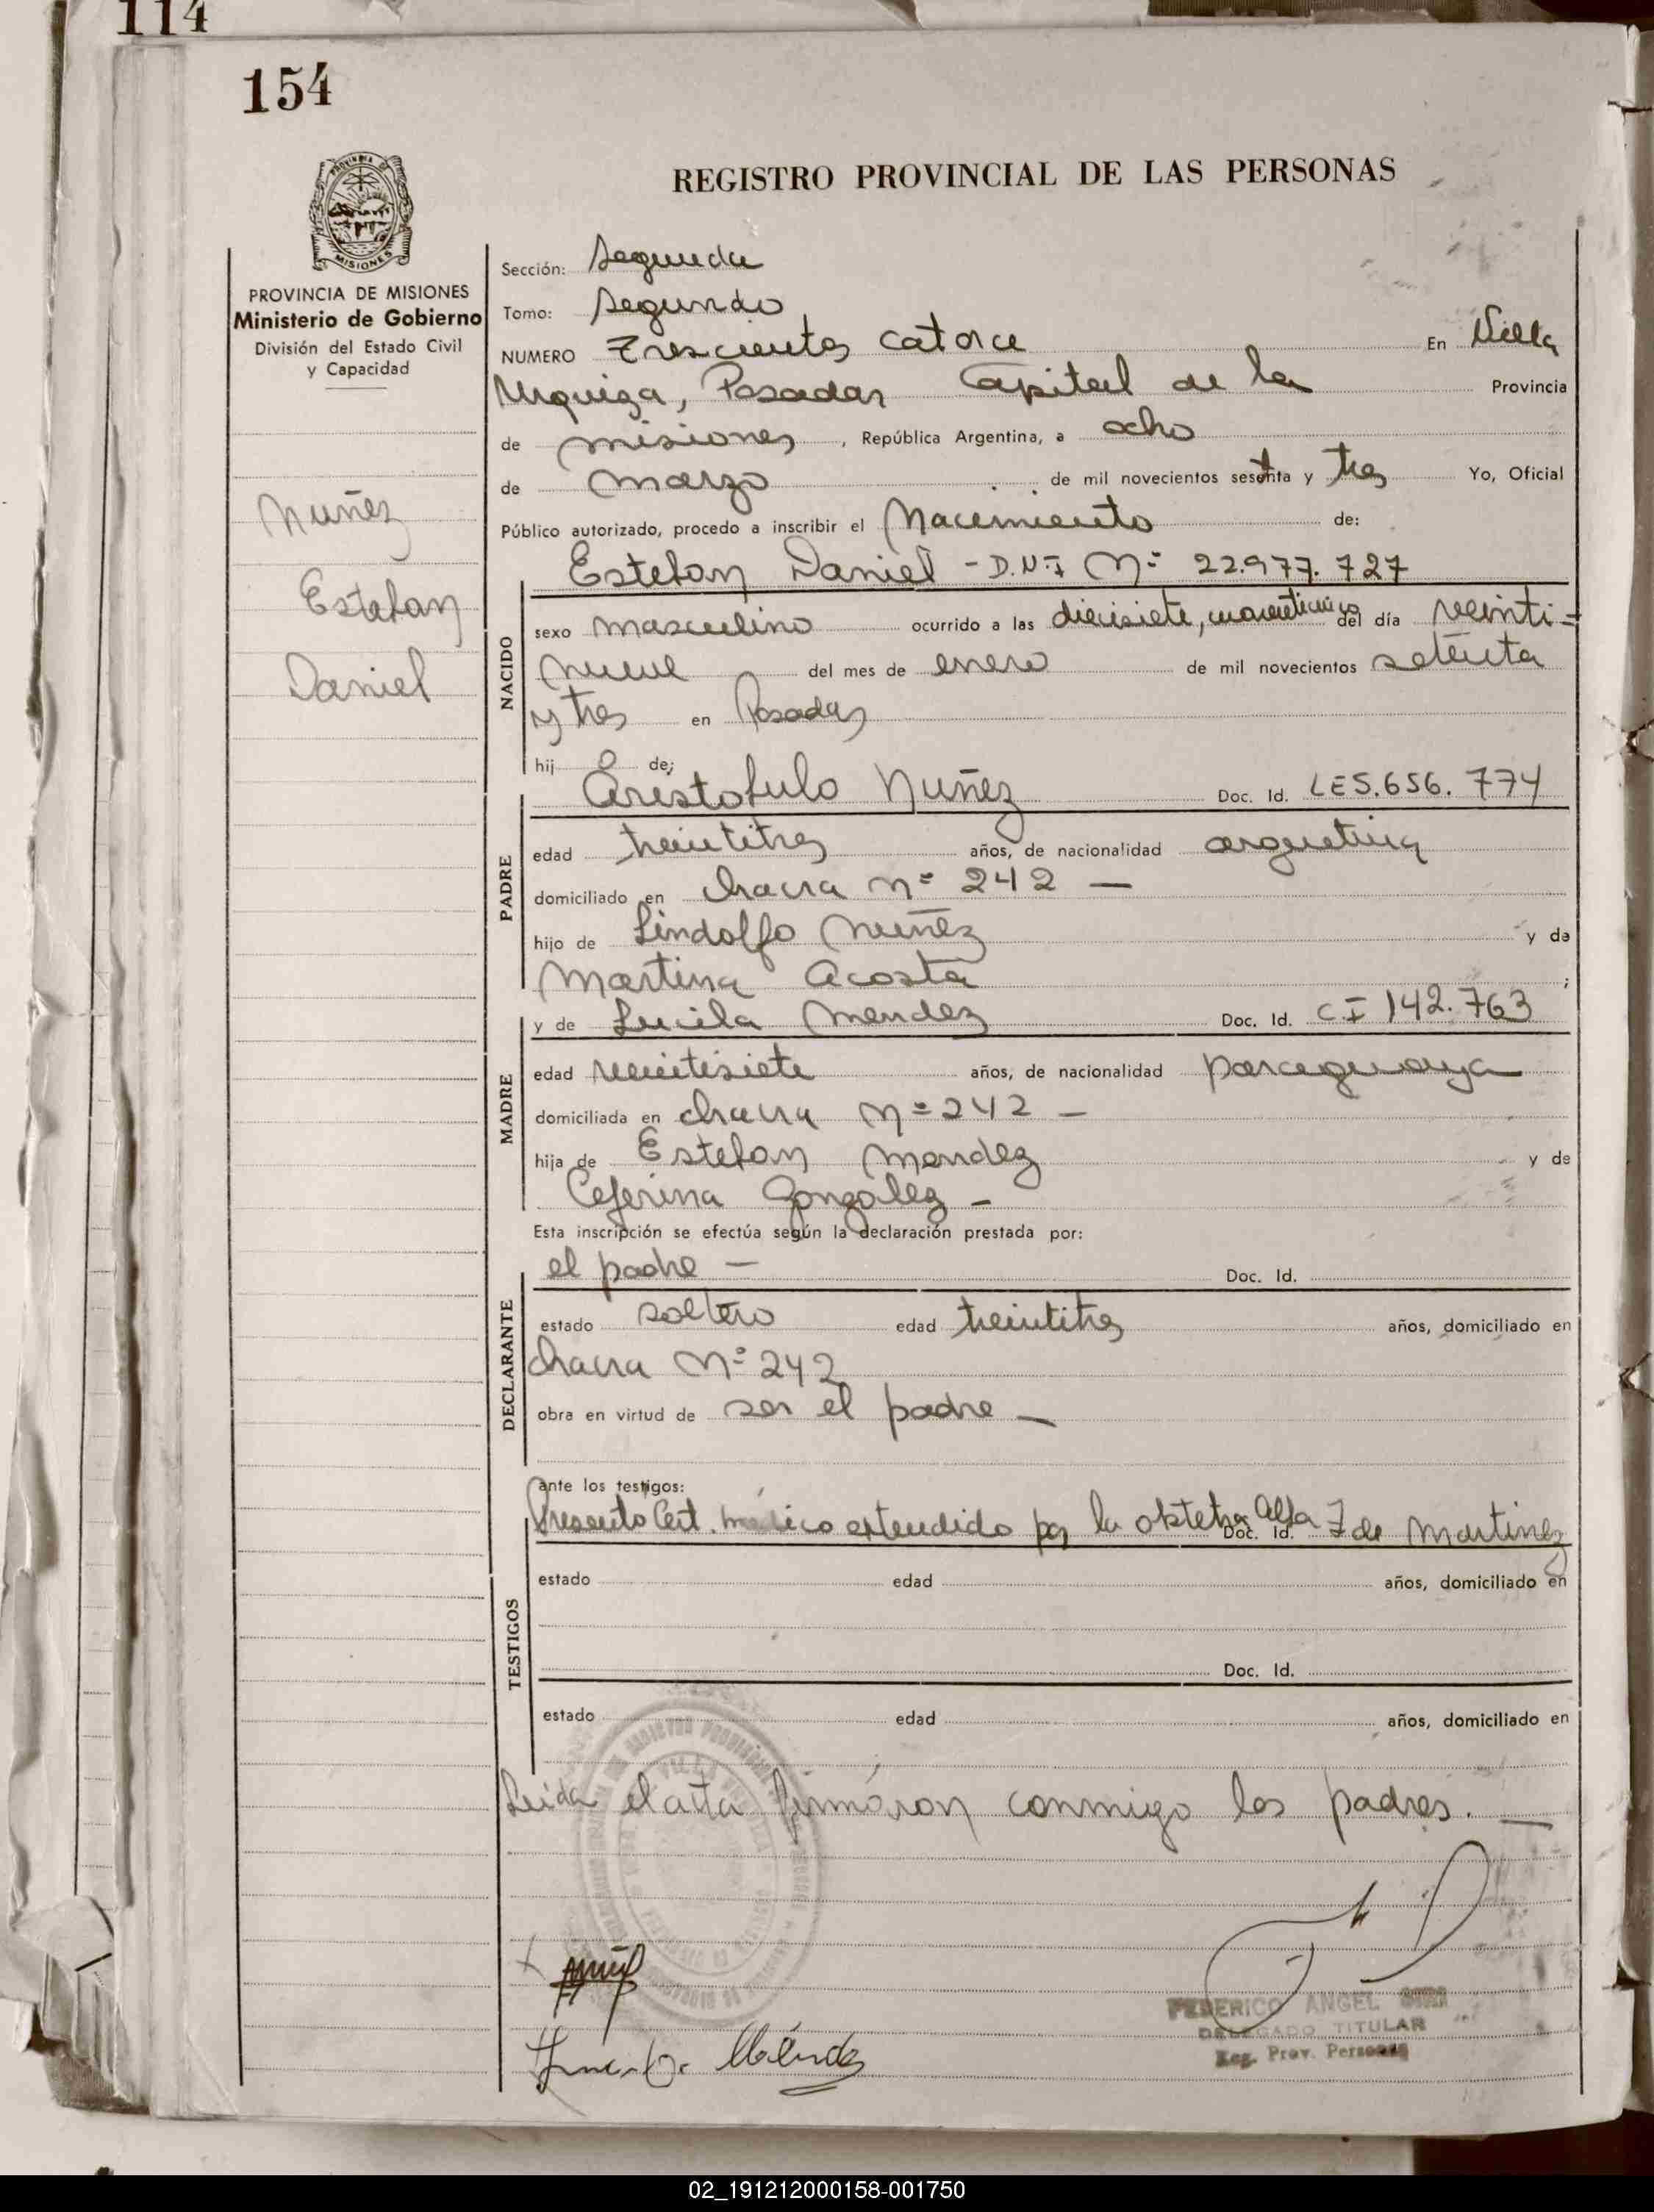 114
154
REGISTRO PROVINCIAL DE LAS PERSONAS
PROVINCIA DE MISIONES
Ministerio de Gobierno
División del Estado Civil
y Capacidad
Nuñez
Esteban
Daniel
Sección: Segunda
Tomo: Segundo
NUMERO Trescientos catorce En Villa
Urquiza, Posadas Capital de la Provincia
de misiones, República Argentina, a ocho
de marzo de mil novecientos setenta y tres Yo, Oficial
Público autorizado, procedo a inscribir el Nacimiento de:
Esteban Daniel - D.N.I Nº 22.977.727
NACIDO
sexo masculino ocurrido a las diecisiete, cuarenticinco del día veinti=
nueve del mes de enero de mil novecientos setenta
y tres en Posadas
hijo de:
Aristobulo Nuñez Doc. Id. LE5.656.774
PADRE
edad treintitres años, de nacionalidad argentina
domiciliado en chacra nº 242 —
hijo de Lindolfo Nuñez y de
Martina Acosta ;
y de Lucila Mendez Doc. Id. C.I 142.763
MADRE
edad veintisiete años, de nacionalidad paraguaya
domiciliada en chacra nº 242 —
hija de Esteban Mendez y de
Ceferina Gonzalez —
Esta inscripción se efectúa según la declaración prestada por:
el padre — Doc. Id.
DECLARANTE
estado soltero edad treintitres años, domiciliado en
chacra Nº 242
obra en virtud de ser el padre —
ante los testigos:
Presento Cert. médico extendido por la obstetra Alfa Z de Martinez
Doc. Id.
TESTIGOS
estado edad años, domiciliado en
Doc. Id.
estado edad años, domiciliado en
Leida el acta firmaron conmigo los padres. —
Méndez
FEDERICO ANGEL
DELEGADO TITULAR
Reg. Prov. Personas
02_191212000158-001750